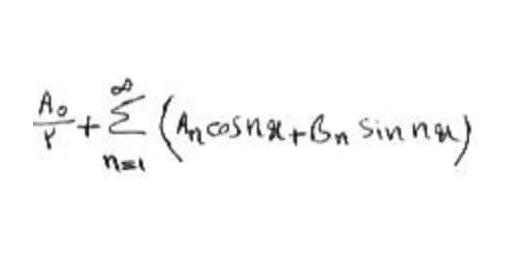 A₀/۲ + ∞∑n=1 (Aₙ cos nx + Bₙ sin nx)